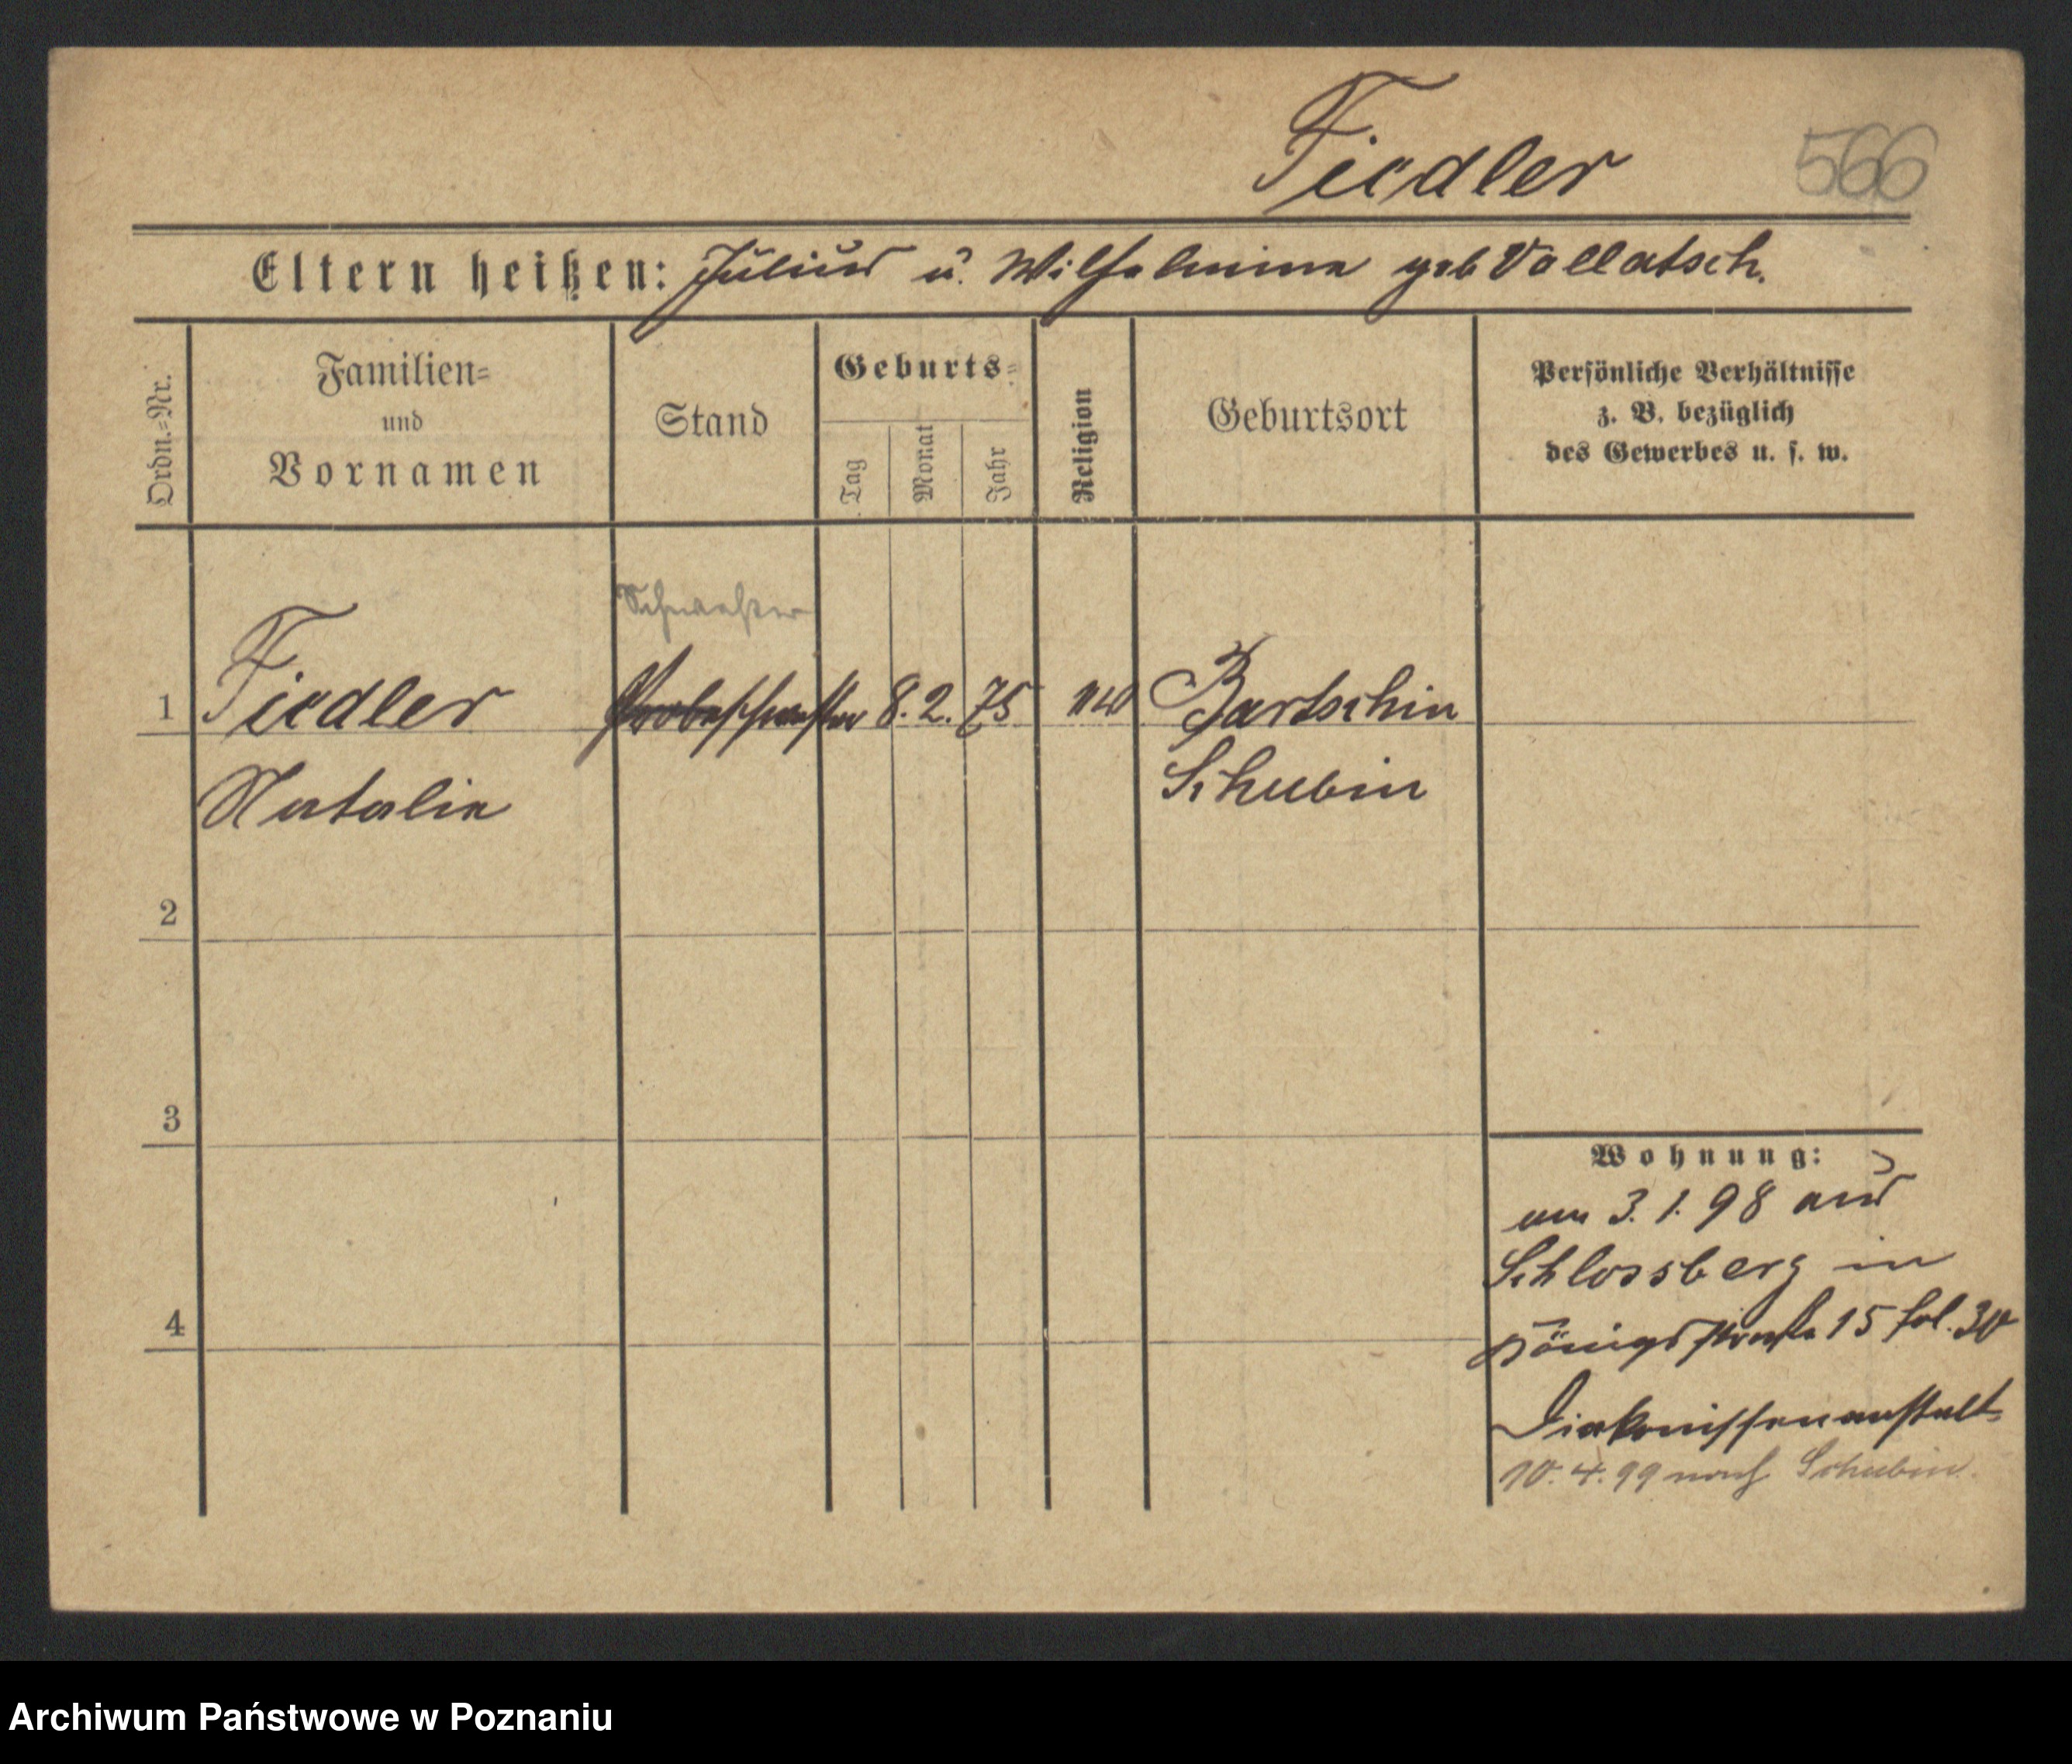 Fiedler 566
Eltern heißen: Julius u. Wilhelmine geb Vallatsch.
Ordn.=Nr.
Familien=
und
Vornamen
Stand
Geburts=
Tag
Monat
Jahr
Religion
Geburtsort
Persönliche Verhältnisse
z. B. bezüglich
des Gewerbes u. s. w.
Schwester
1 Fiedler Probeschwester 8. 2. 75 Bartschin
Natalie Schubin
2
3
4
Wohnung:
am 3. 1. 98 aus
Schlossberg in
Königsstraße 15 fol. 30
Diakonissenanstalt
10. 4. 99 nach Schubin.
Archiwum Państwowe w Poznaniu